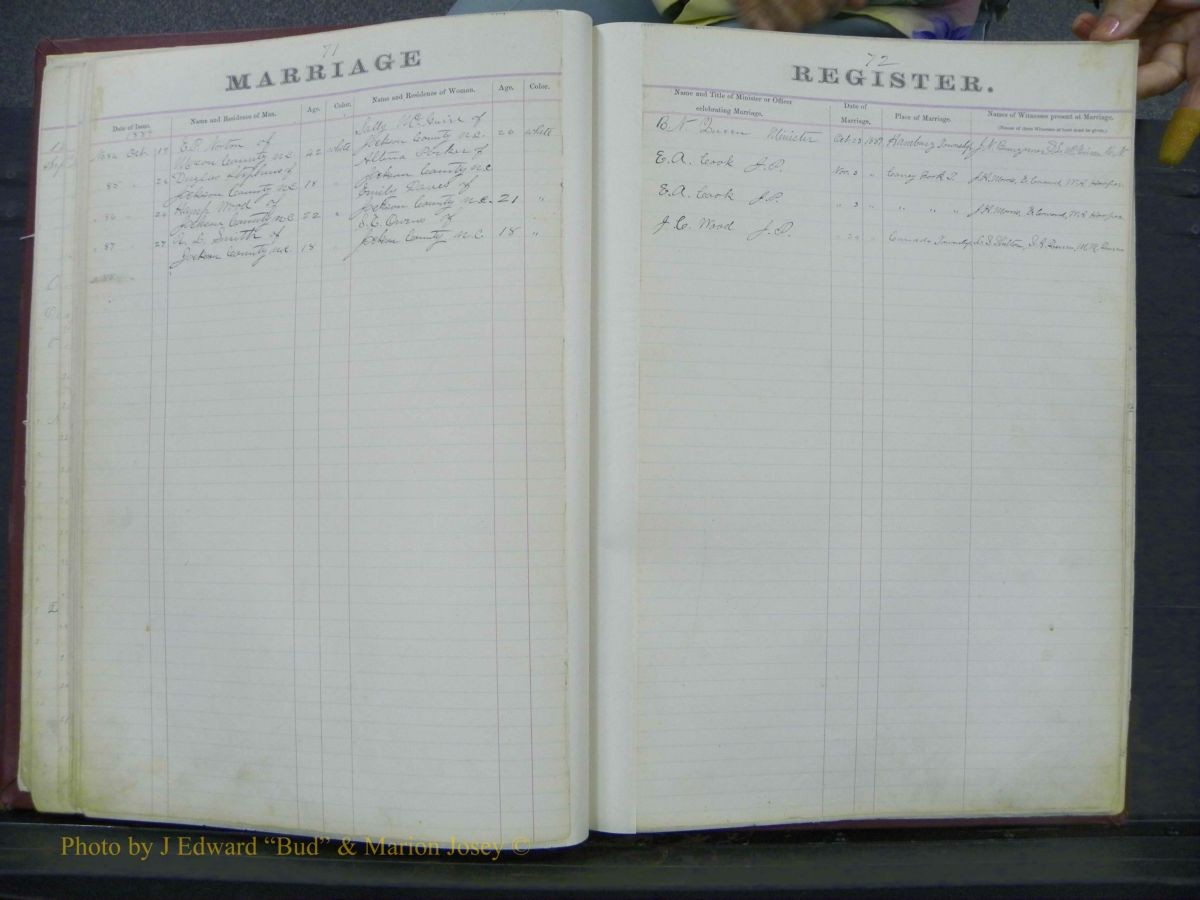 71
MARRIAGE
Date of Issue.
Name and Residence of Man.
Age.
Color.
Name and Residence of Woman.
Age.
Color.
Oct. 18
E. P. Norton of
Macon County N.C.
22
white
Sally McGuire of
Jackson County N.C.
20
white
85 " 24
Douglas Stephens of
Jackson County N.C.
18
"
Albina Parker of
Jackson County N.C.
86 " 24
Wood of
Jackson County N.C.
22
"
Emily Daves of
Jackson County N.C.
21
"
87 " 27
Smith of
Jackson County N.C.
18
"
Owens of
Jackson County N.C.
18
"
72
REGISTER.
Name and Title of Minister or Officer
celebrating Marriage.
Date of
Marriage.
Place of Marriage.
Names of Witnesses present at Marriage.
(Names of three Witnesses at least must be given.)
B. N. Queen Minister
Oct. 23 1887
Hamburg Township
E. A. Cook J.P.
Nov. 3 "
Caney Fork T.
J. H. Moore, E. Coward, W. H. Hooper
E. A. Cook J.P.
" 3 "
" " "
J. H. Moore, E. Coward, W. H. Hooper
J. C. Wood J.P.
Canada Township
Photo by J Edward “Bud” & Marion Josey ©